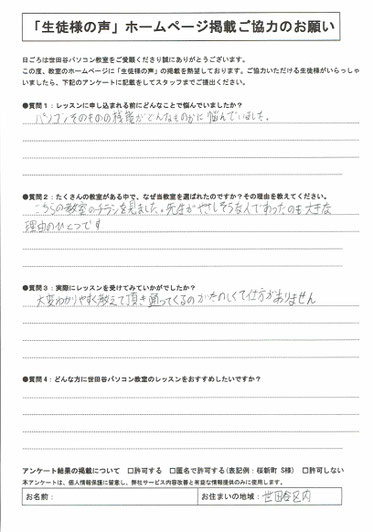 「生徒様の声」ホームページ掲載ご協力のお願い
日ごろは世田谷パソコン教室をご愛顧くださり誠にありがとうございます。
この度、教室のホームページに「生徒様の声」の掲載を熱望しております。ご協力いただける生徒様がいらっしゃ
いましたら、下記のアンケートに記載をしてスタッフまでご提出ください。
●質問1：レッスンに申し込まれる前にどんなことで悩んでいましたか?
パソコンそのものの機能がどんなものかに悩んでいました。
●質問2：たくさんの教室がある中で、なぜ当教室を選ばれたのですか?その理由を教えてください。
こちらの教室のチラシを見ました。先生がやさしそうな人であったのも大きな
理由のひとつです
●質問3：実際にレッスンを受けてみていかがでしたか?
大変わかりやすく教えて頂き通ってくるのがたのしくて仕方がありません
●質問4：どんな方に世田谷パソコン教室のレッスンをおすすめしたいですか?
アンケート結果の掲載について　□許可する　□匿名で許可する(表記例：桜新町 S様)　□許可しない
本アンケートは、個人情報保護に留意し、弊社サービス内容改善と有益な情報提供のみに使用します。
お名前：　お住まいの地域：世田谷区内